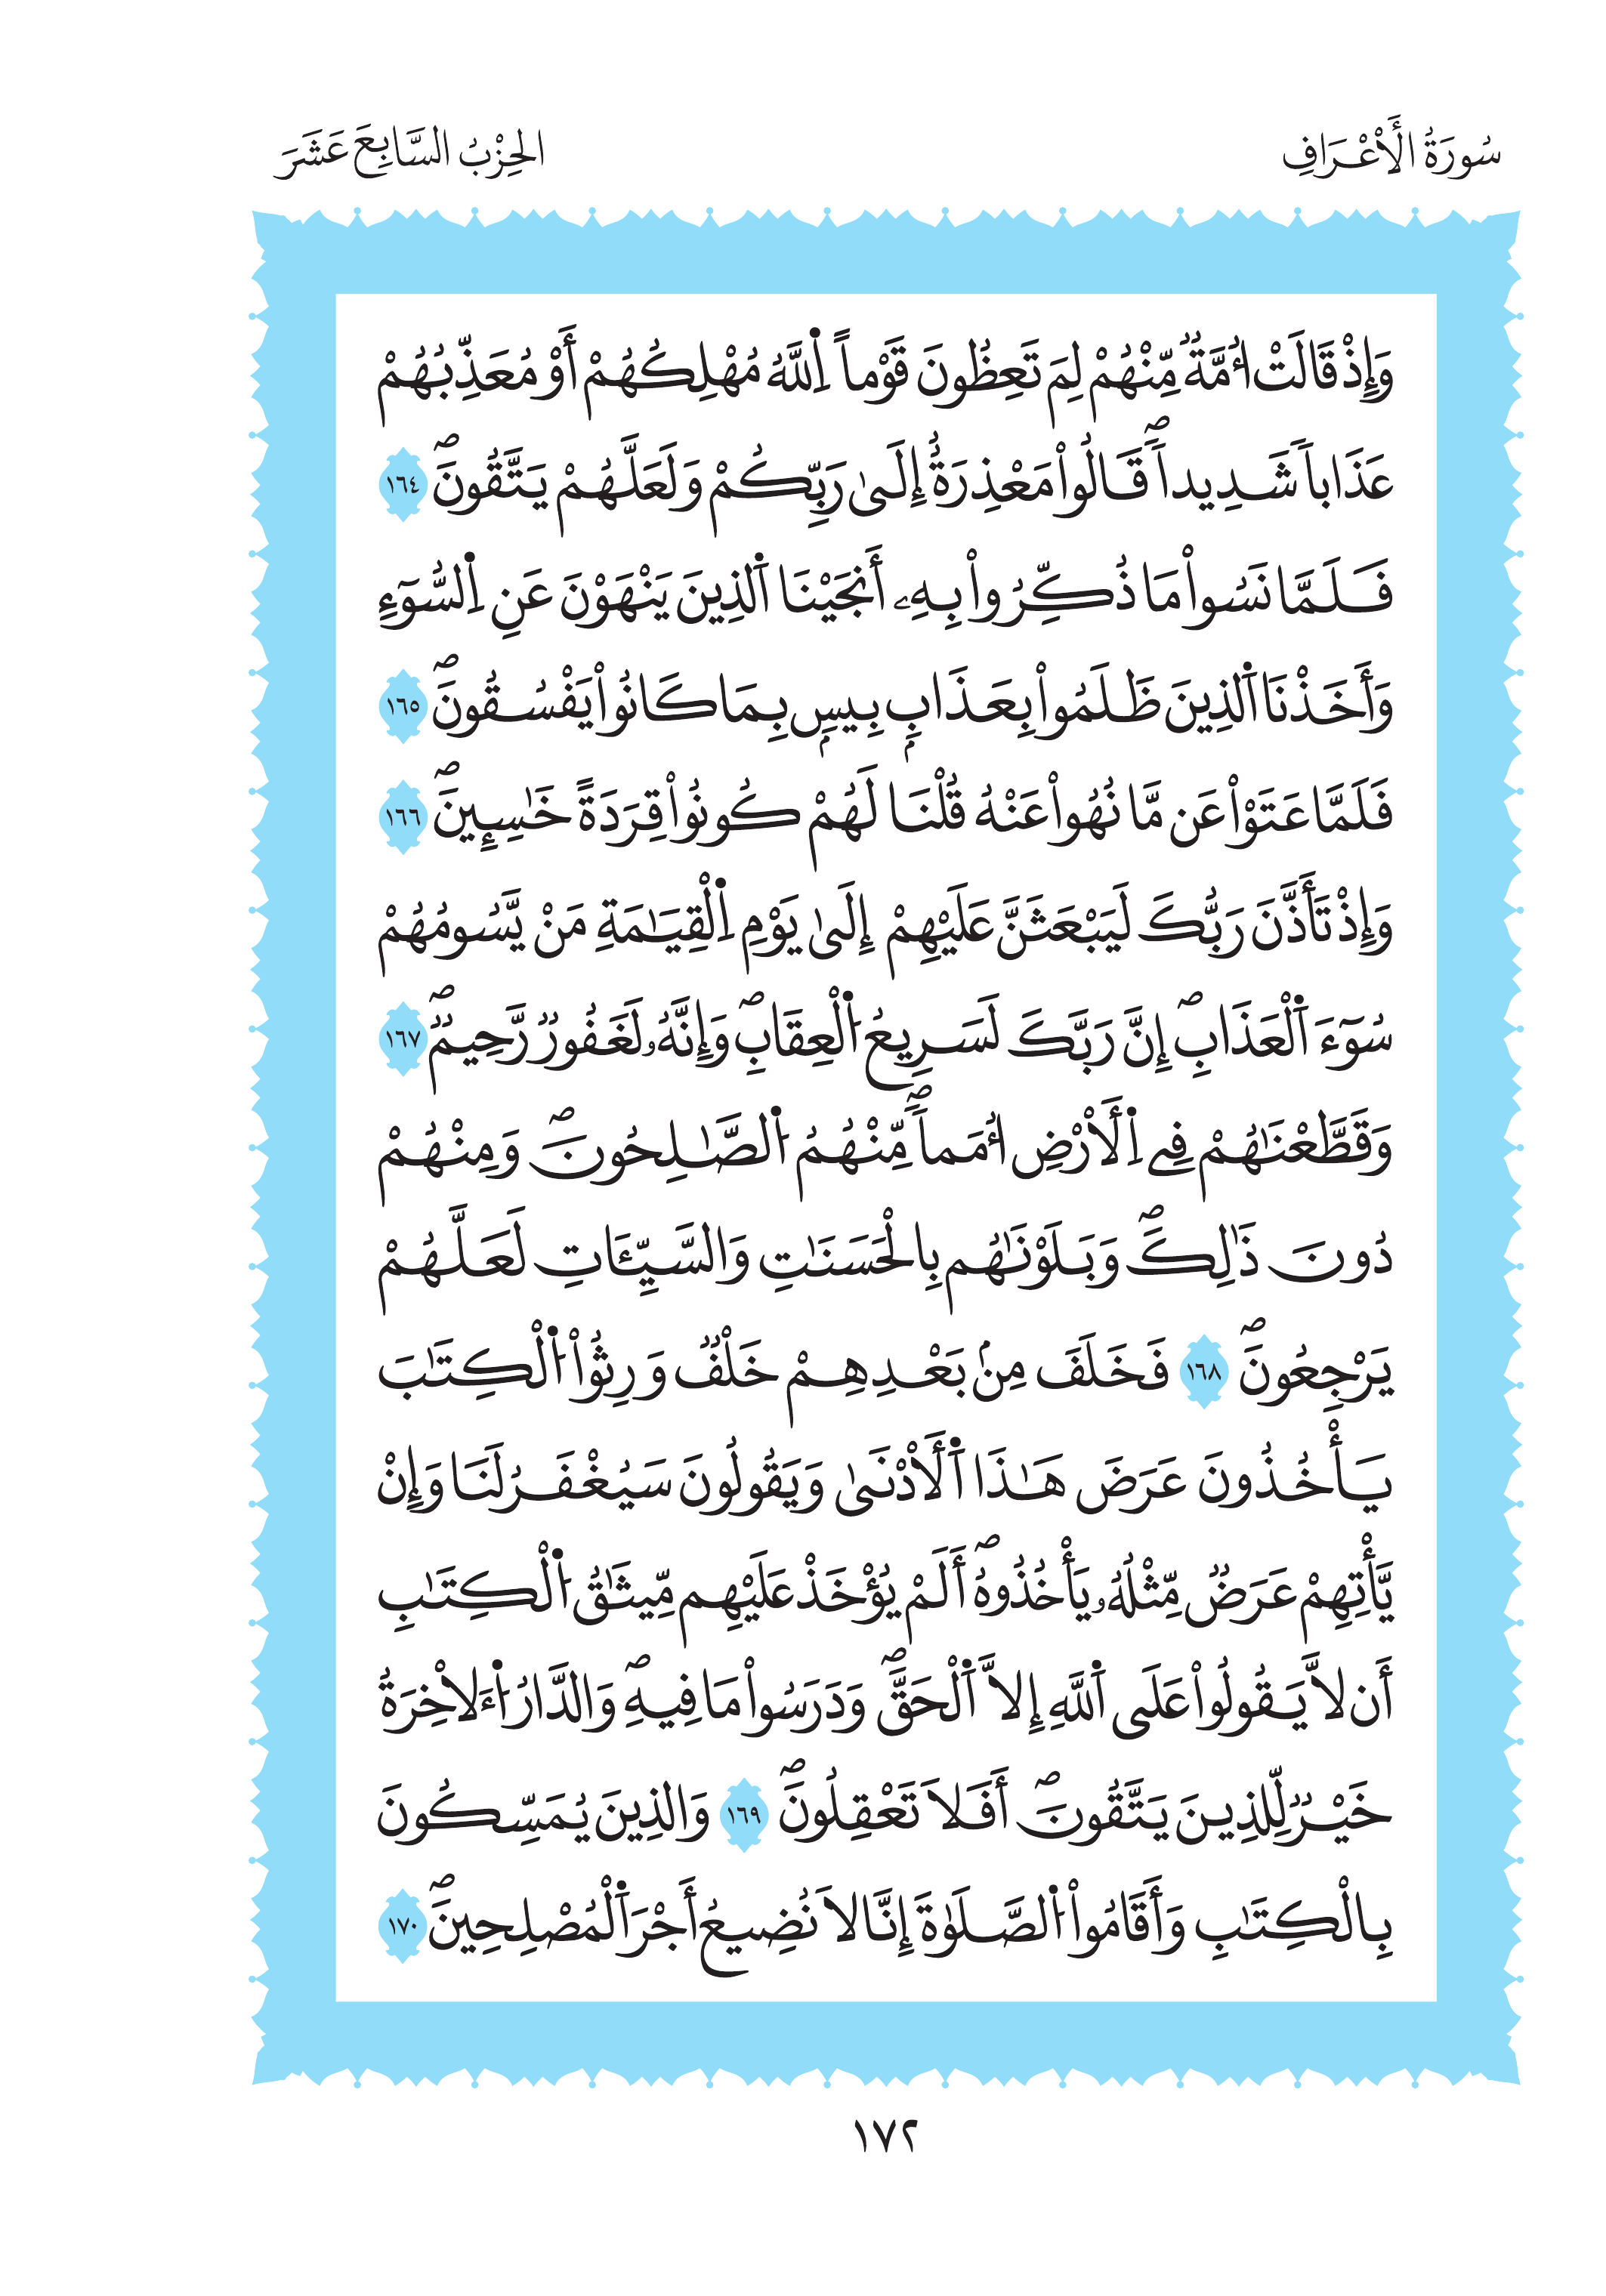 سُورَةُ الَاعْرَافِ
الحِزْبُ السَّابِعَ عَشَرَ
وَإِذْ قَالَتُ ا۟مَّةٞ مِّنْهُمْ لِمَ تَعِظُونَ قَوْماً اِ۬للَّهُ مُهْلِكُهُمْ أَوْ مُعَذِّبُهُمْ
عَذَاباٗ شَدِيداٗۖ قَالُواْ مَعْذِرَةٌ إِلَىٰ رَبِّكُمْ وَلَعَلَّهُمْ يَتَّقُونَۖ ١٦٤
فَلَمَّا نَسُواْ مَا ذُكِّرُواْ بِهِۦ أَنجَيْنَا اَ۬لذِينَ يَنْهَوْنَ عَنِ اِ۬لسُّوٓءِ
وَأَخَذْنَا اَ۬لذِينَ ظَلَمُواْ بِعَذَابِۢ بِيسِۢ بِمَا كَانُواْ يَفْسُقُونَۖ ١٦٥
فَلَمَّا عَتَوْاْ عَن مَّا نُهُواْ عَنْهُ قُلْنَا لَهُمْ كُونُواْ قِرَدَةً خَٰسِـِٕينَۖ ١٦٦
وَإِذْ تَأَذَّنَ رَبُّكَ لَيَبْعَثَنَّ عَلَيْهِمْ إِلَىٰ يَوْمِ اِ۬لْقِيَٰمَةِ مَنْ يَّسُومُهُمْ
سُوٓءَ اَ۬لْعَذَابِۖ إِنَّ رَبَّكَ لَسَرِيعُ اُ۬لْعِقَابِۖ وَإِنَّهُۥ لَغَفُورٞ رَّحِيمٞۖ ١٦٧
وَقَطَّعْنَٰهُمْ فِے اِ۬لَارْضِ أُمَماٗۖ مِّنْهُمُ اُ۬لصَّٰلِحُونَۖ وَمِنْهُمْ
دُونَ ذَٰلِكَۖ وَبَلَوْنَٰهُم بِالْحَسَنَٰتِ وَالسَّيِّـَٔاتِ لَعَلَّهُمْ
يَرْجِعُونَۖ ١٦٨ فَخَلَفَ مِنۢ بَعْدِهِمْ خَلْفٞ وَرِثُواْ اُ۬لْكِتَٰبَ
يَأْخُذُونَ عَرَضَ هَٰذَا اَ۬لَادْنَىٰ وَيَقُولُونَ سَيُغْفَرُ لَنَا وَإِنْ
يَّأْتِهِمْ عَرَضٞ مِّثْلُهُۥ يَأْخُذُوهُۖ أَلَمْ يُؤْخَذْ عَلَيْهِم مِّيثَٰقُ اُ۬لْكِتَٰبِ
أَن لاَّ يَقُولُواْ عَلَى اَ۬للَّهِ إِلاَّ اَ۬لْحَقَّۖ وَدَرَسُواْ مَا فِيهِۖ وَالدَّارُ اُ۬لَاخِرَةُ
خَيْرٞ لِّلذِينَ يَتَّقُونَۖ أَفَلَا تَعْقِلُونَۖ ١٦٩ وَالذِينَ يُمَسِّكُونَ
بِالْكِتَٰبِ وَأَقَامُواْ اُ۬لصَّلَوٰةَ إِنَّا لَا نُضِيعُ أَجْرَ اَ۬لْمُصْلِحِينَۖ ١٧٠
١٧٢